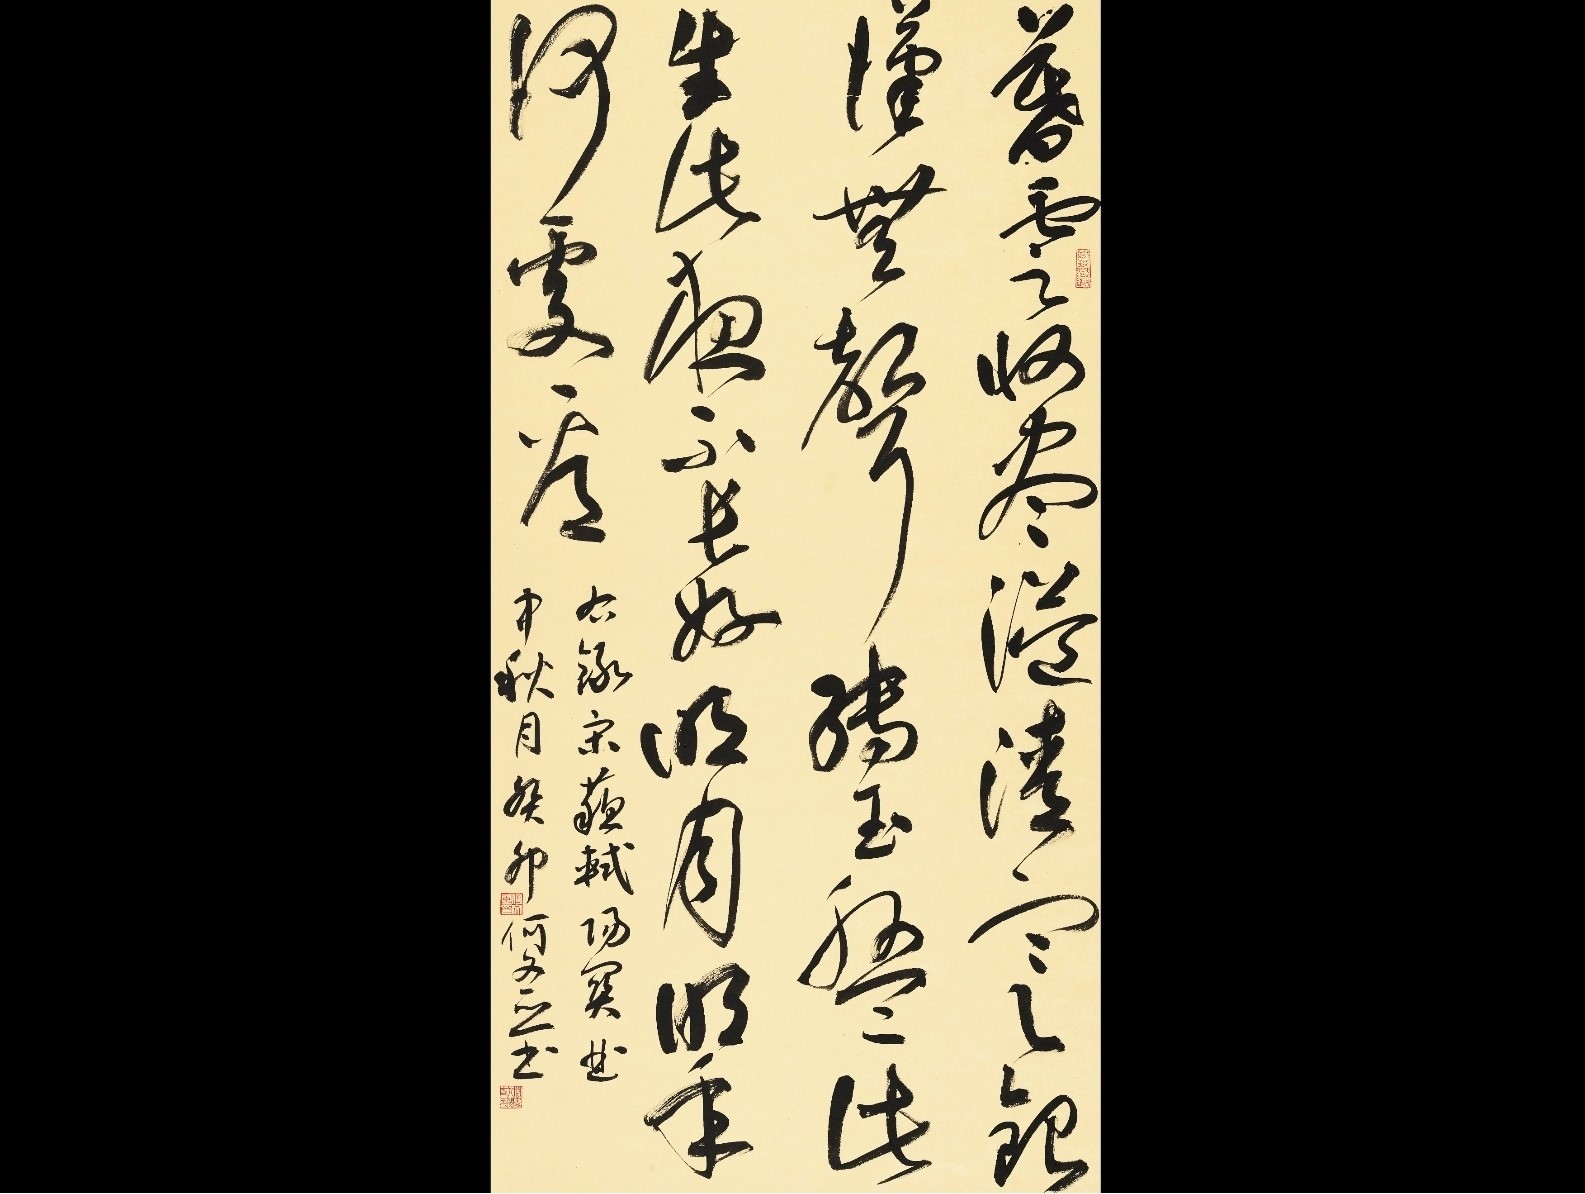 暮雲收盡溢清寒銀
漢無聲轉玉盤此
生此夜不長好明月明年
何處看
右錄宋蘇軾陽關曲
中秋月癸卯何 書